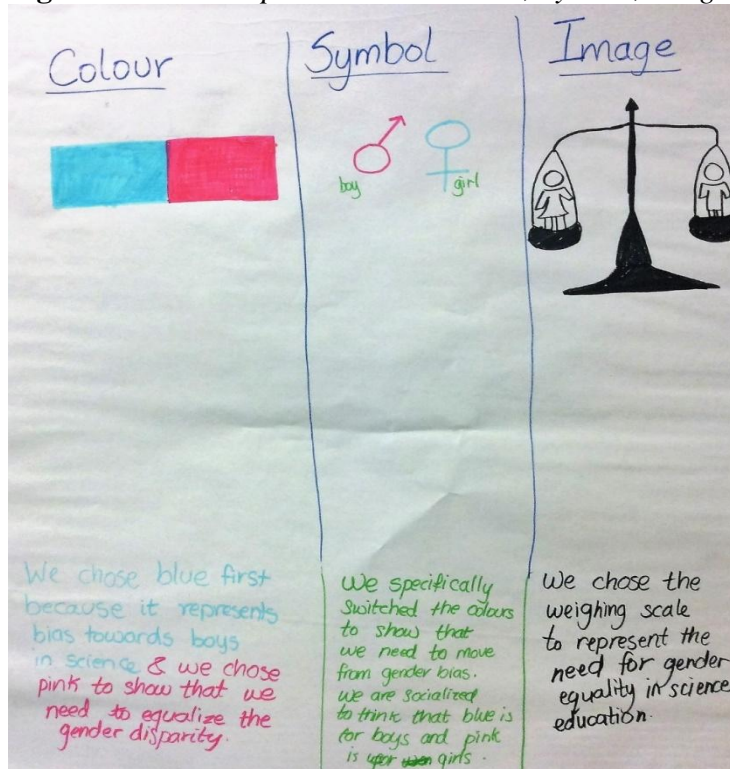 Colour
Symbol
Image
boy
girl
We chose blue first
because it represents
bias towards boys
in science & we chose
pink to show that we
need to equalize the
gender disparity.
We specifically
switched the colours
to show that
we need to move
from gender bias.
we are socialized
to think that blue is
for boys and pink
is girls.
We chose the
weighing scale
to represent the
need for gender
equality in science
education.